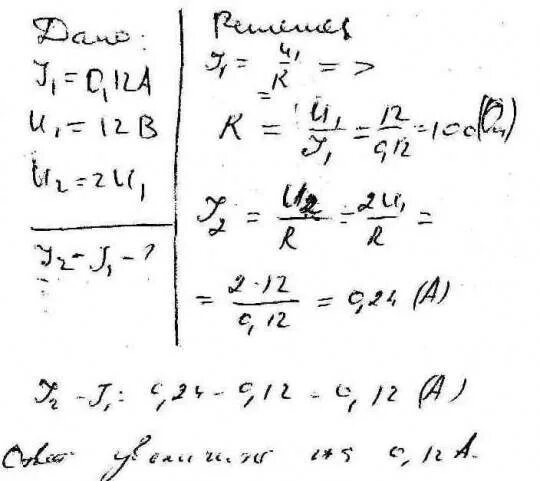 Дано:
I₁ = 0,12А
U₁ = 12В
U₂ = 2U₁
I₂ - I₁ - ?
Решение
I₁ = U₁/R = >
R = U₁/I₁ = 12/0,12 = 100(Ом)
I₂ = U₂/R = 2U₁/R =
= 2·12/0,12 = 0,24 (А)
I₂ - I₁ = 0,24 - 0,12 = 0,12 (А)
Ответ увеличится на 0,12А.